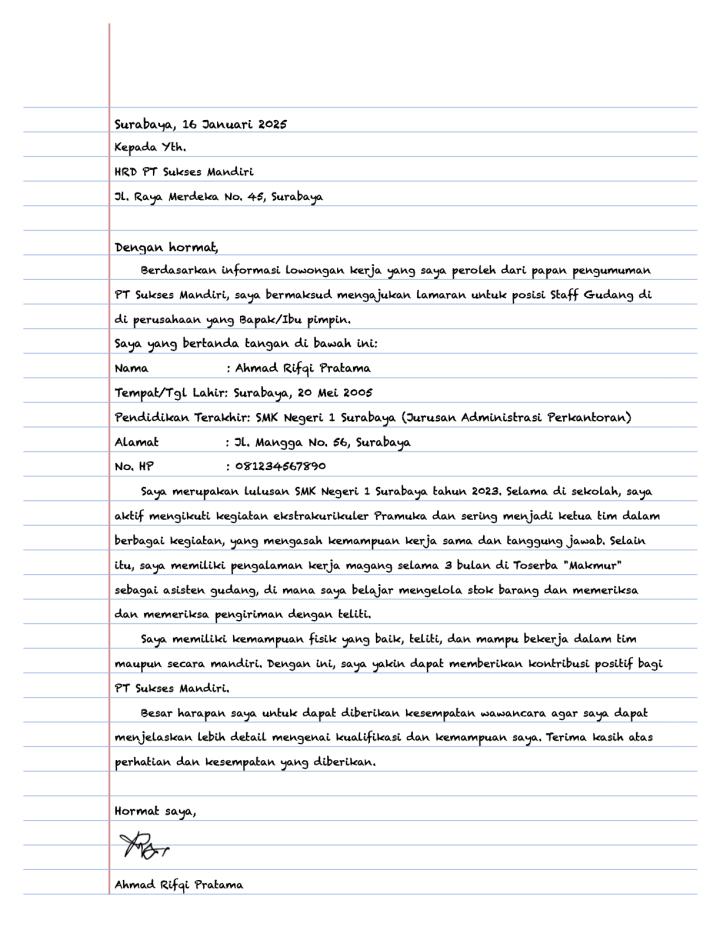 Surabaya, 16 Januari 2025
Kepada Yth.
HRD PT Sukses Mandiri
Jl. Raya Merdeka No. 45, Surabaya
Dengan hormat,
Berdasarkan informasi lowongan kerja yang saya peroleh dari papan pengumuman
PT Sukses Mandiri, saya bermaksud mengajukan lamaran untuk posisi Staff Gudang di
di perusahaan yang Bapak/Ibu pimpin.
Saya yang bertanda tangan di bawah ini:
Nama : Ahmad Rifqi Pratama
Tempat/Tgl Lahir: Surabaya, 20 Mei 2005
Pendidikan Terakhir: SMK Negeri 1 Surabaya (Jurusan Administrasi Perkantoran)
Alamat : Jl. Mangga No. 56, Surabaya
No. HP : 081234567890
Saya merupakan lulusan SMK Negeri 1 Surabaya tahun 2023. Selama di sekolah, saya
aktif mengikuti kegiatan ekstrakurikuler Pramuka dan sering menjadi ketua tim dalam
berbagai kegiatan, yang mengasah kemampuan kerja sama dan tanggung jawab. Selain
itu, saya memiliki pengalaman kerja magang selama 3 bulan di Toserba "Makmur"
sebagai asisten gudang, di mana saya belajar mengelola stok barang dan memeriksa
dan memeriksa pengiriman dengan teliti.
Saya memiliki kemampuan fisik yang baik, teliti, dan mampu bekerja dalam tim
maupun secara mandiri. Dengan ini, saya yakin dapat memberikan kontribusi positif bagi
PT Sukses Mandiri.
Besar harapan saya untuk dapat diberikan kesempatan wawancara agar saya dapat
menjelaskan lebih detail mengenai kualifikasi dan kemampuan saya. Terima kasih atas
perhatian dan kesempatan yang diberikan.
Hormat saya,
Ahmad Rifqi Pratama